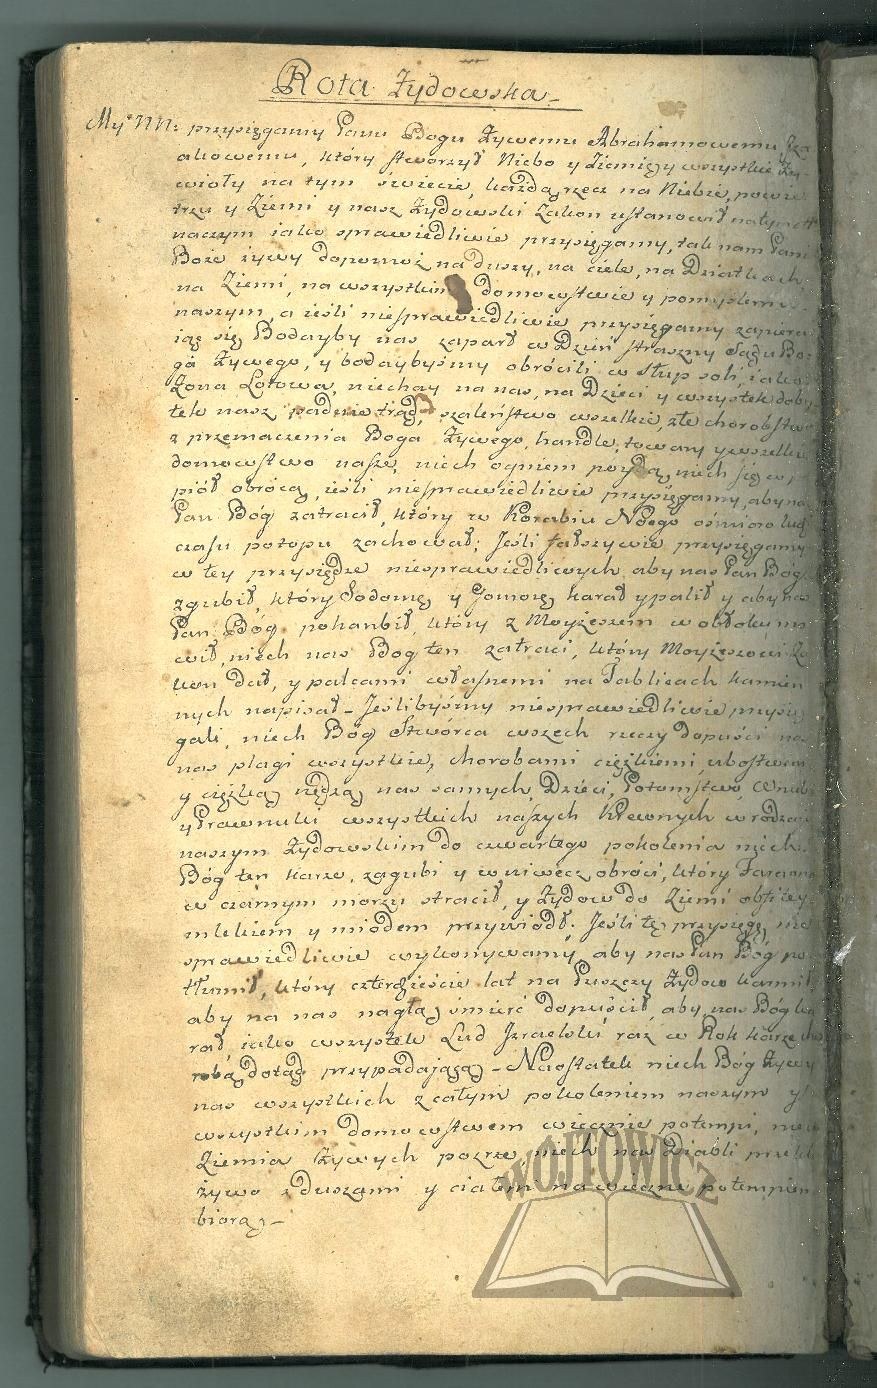 Rota Żydowska
My NN: przysięgamy Panu Bogu Żywemu Abrahamowemu Iza
akowemu, który stworzył Niebo y Ziemię, y wszystkie Ży-
wioły na tym świecie, każdą rzecz na Niebie, powie
trzu y Ziemi y nasz Żydowski Zakon ustanowił na tym
naczym iako sprawiedliwie przysięgamy, tak nam Pani
Boże żywy dopomoż na duszy, na ciele, na Dziatkach
na Ziemi, na wszystkim domowstwie y pomysleniu
naszym, a ieśli niesprawiedliwie przysięgamy zapiera
iąc się, Bodayby nas zaparł w Dzień straszny Sądu Bo-
ga Żywego, y bodaybyśmy obrócili w słup soli, iako
Żona Lotowa, niechay na nas, na Dzieci y wszystek doby
tek nasz padnie trąd, szaleństwo wszelkie, złe chorobstwo
z przemaczenia Boga Żywego, handle, towary y wszelkie
domowstwo nasze, niech ogniem poydą, niech się w po
piół obrócą, ieśli niesprawiedliwie przysięgamy, aby nas
Pan Bóg zatracił, który w Korabiu Noego ośmioro ludzi
czasu potopu zachował: Jeśli fałszywie przysięgamy
w tey przysiędze niesprawiedliwych, aby nas Pan Bóg
zgubił, który Sodomę y Gomorę karał y palił y aby nas
Pan Bóg pohanbił, który z Moyżeszem w obłoku mó
wił, niech nas Bog ten zatraci, który Moyżeszowi Za
kon dał, y palcami własnemi na Tablicach kamien
nych napisał – Jeślibyśmy niesprawiedliwie przysię
gali, niech Bóg Stwórca wszech rzeczy dopuści na
nas plagi wszystkie, chorobami ciężkiemi, ubostwem
y ciężką nędzą nas samych, Dzieci, Potomstwo, Wnuki
y Prawnuki wszystkich naszych Krewnych w rodzaju
naszym Żydowskim do czwartego pokolenia niech
Bóg ten karze, zagubi y w niwecz obróci, który Faraona
w czarnym morzu stracił, y Żydow do Ziemi obfitey
mlekiem y miodem przywiodł: Jeśli tę przysięgę nie
sprawiedliwie wykonywamy, aby nas Pan Bóg po
tłumił, który czterdzieście lat na Puszczy Żydow karmił,
aby na nas nagłą śmierć dopuścił, aby nas Bóg ka
rał, iako wszystek Lud Izraelski raz w Rok karze cho
robą dotąd przypadaiącą – Naostatek niech Bóg Żywy
nas wszystkich z całym pokoleniem naszym y
wszystkim domowstwem wiecznie potempi, niech
Ziemia Żywych pozrze, niech nas Diabli przeklę
żywo z duszami y ciałem na wieczne potempien
biorą –
WÓJTOWICZ